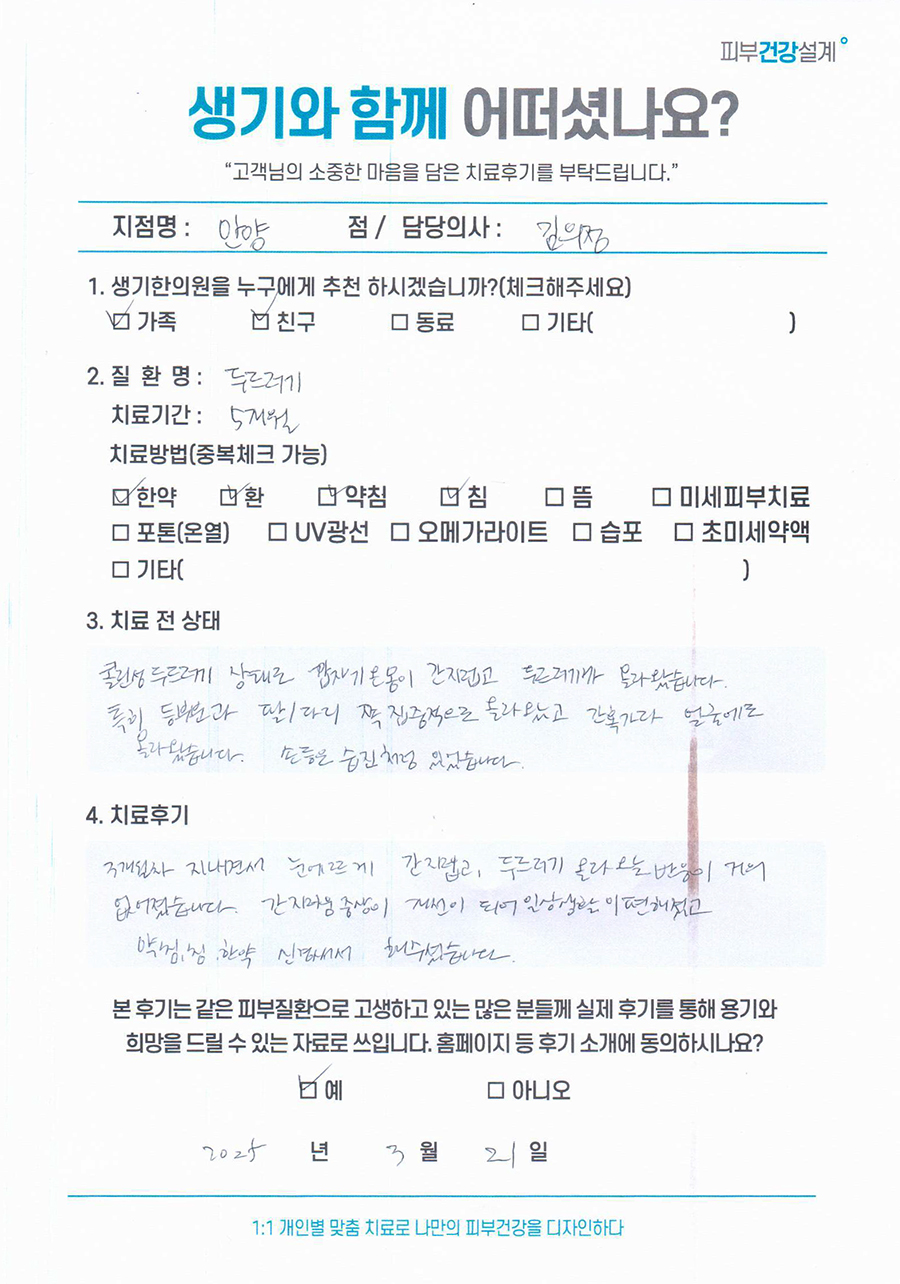 피부건강설계
생기와 함께 어떠셨나요?
“고객님의 소중한 마음을 담은 치료후기를 부탁드립니다.”
지점명 : 안양 점 / 담당의사 : 김의정
1. 생기한의원을 누구에게 추천 하시겠습니까?(체크해주세요)
☑ 가족 ☑ 친구 ☐ 동료 ☐ 기타( )
2. 질 환 명 : 두드러기
치료기간 : 5개월
치료방법(중복체크 가능)
☑ 한약 ☑ 환 ☑ 약침 ☑ 침 ☐ 뜸 ☐ 미세피부치료
☐ 포톤(온열) ☐ UV광선 ☐ 오메가라이트 ☐ 습포 ☐ 초미세약액
☐ 기타( )
3. 치료 전 상태
콜린성 두드러기 상태로 갑자기 온몸이 간지럽고 두드러기가 올라왔습니다.
특히 등부분과 팔/다리 쪽 집중적으로 올라왔고 간혹가다 얼굴에도
올라왔습니다. 손등은 습진처럼 있었습니다.
4. 치료후기
3개월차 지내면서 눈에띄게 간지럽고, 두드러기 올라오는 반응이 거의
없어졌습니다. 간지러움 증상이 개선이 되어 일상생활이 편해졌고
약침, 침, 한약 신경써서 해주셨습니다.
본 후기는 같은 피부질환으로 고생하고 있는 많은 분들께 실제 후기를 통해 용기와
희망을 드릴 수 있는 자료로 쓰입니다. 홈페이지 등 후기 소개에 동의하시나요?
☑ 예 ☐ 아니오
2025 년 3 월 21 일
1:1 개인별 맞춤 치료로 나만의 피부건강을 디자인하다